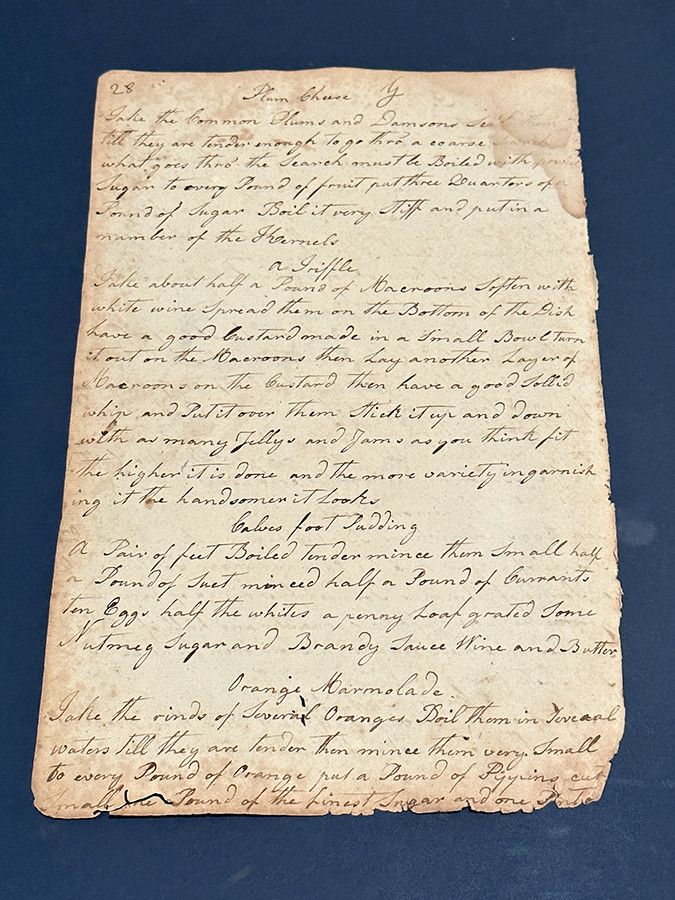 28 Plum Cheese
Take the Common Plums and Damsons
till they are tender enough to go thro' a coarse Search
what goes thro' the Search must be Boiled with
Sugar to every Pound of fruit put three Quarters of a
Pound of Sugar Boil it very Stiff and put in a
number of the Kernels
A Triffle
Take about half a Pound of Macroons Soften with
white wine Spread them on the Bottom of the Dish
have a good Custard made in a Small Bowl turn
it out on the Macroons then Lay another Layer of
Macroons on the Custard then have a good Sollid
whip and Put it over them Stick it up and down
with as many Jellys and Jams as you think fit
the higher it is done and the more variety in garnish
ing it the handsomer it Looks
Calves foot Pudding
A Pair of feet Boiled tender mince them Small half
a Pound of Suet minced half a Pound of Currants
ten Eggs half the whites a penny Loaf grated Some
Nutmeg Sugar and Brandy Sauce Wine and Butter
Orange Marmolade
Take the rinds of Several Oranges Boil them in Several
waters till they are tender then mince them very Small
to every Pound of Orange put a Pound of Pippins cut
Small one Pound of the finest Sugar and one